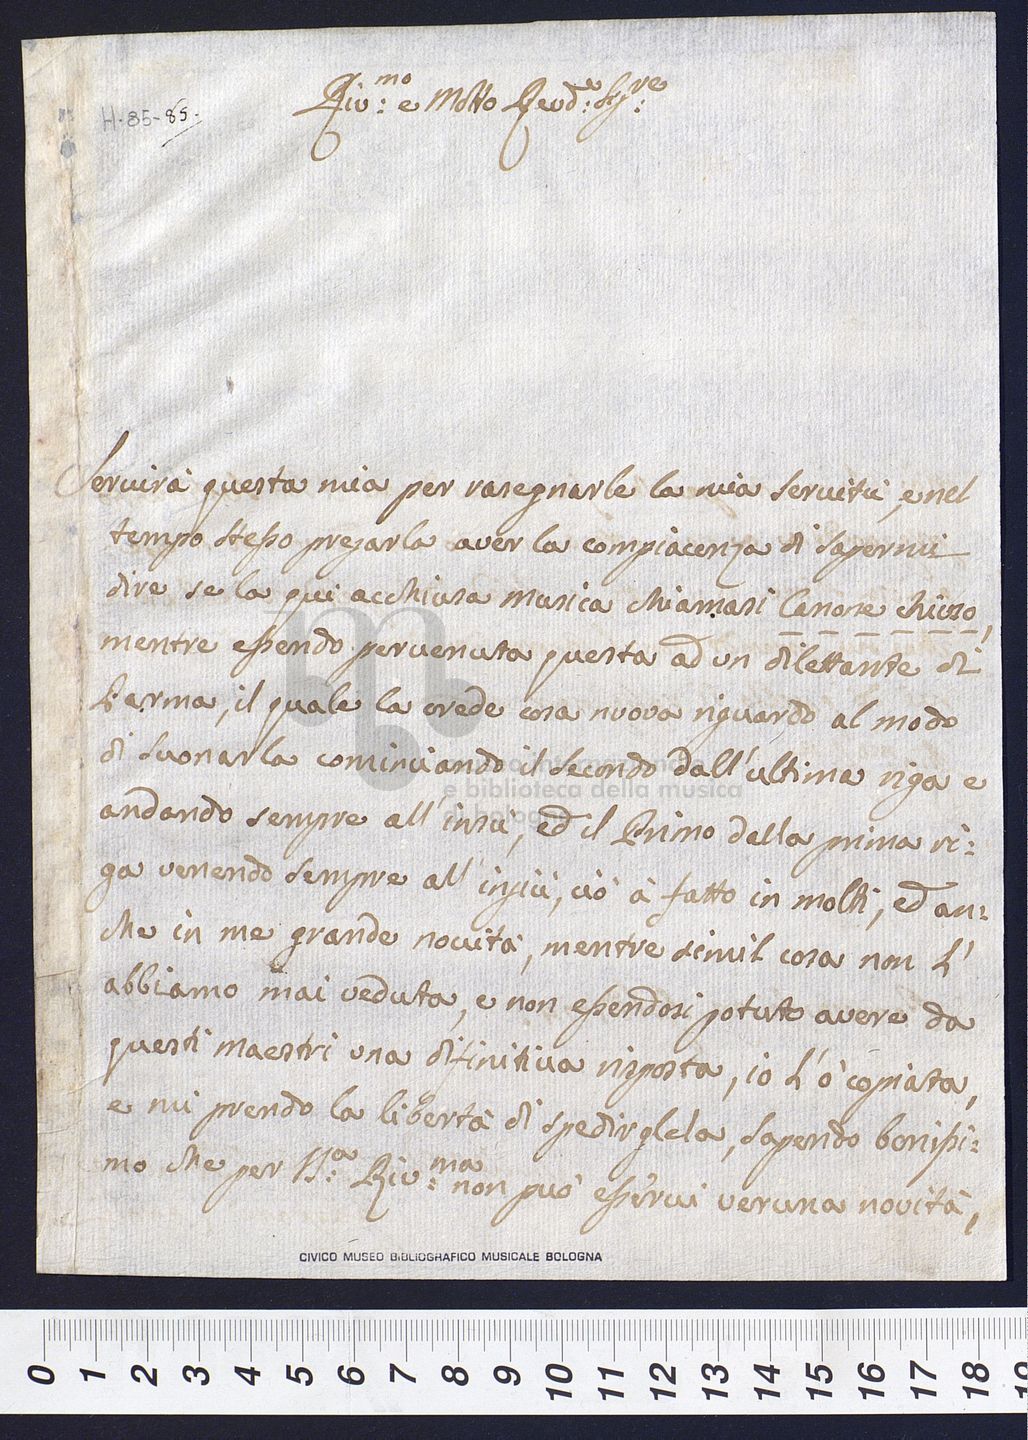 H.85-85.
Riv:mo e Molto Revd:e Sig:re
Servirà questa mia per rasegnarle la mia servitù, e nel
tempo stesso pregarla aver la compiacenza di sapermi
dire se la qui acchiusa musica chiamasi Canone chiuso,
mentre essendo pervenuta questa ad un dilettante di
Parma, il quale la crede cosa nuova riguardo al modo
di suonarla cominciando il secondo dall'ultima riga e
andando sempre all'insù, ed il Primo dalla prima ri:
ga venendo sempre all'ingiù, ciò à fatto in molti, ed an:
che in me grande novità, mentre simil cosa non l'
abbiamo mai veduta, e non essendosi potuto avere da
questi maestri una difinitiva risposta, io l'ò copiata,
e mi prendo la libertà di spedirglela, sapendo bonissi:
mo che per V:a Riv:ma non può esservi veruna novità,
e biblioteca della musica
CIVICO MUSEO BIBLIOGRAFICO MUSICALE BOLOGNA
0 1 2 3 4 5 6 7 8 9 10 11 12 13 14 15 16 17 18 19